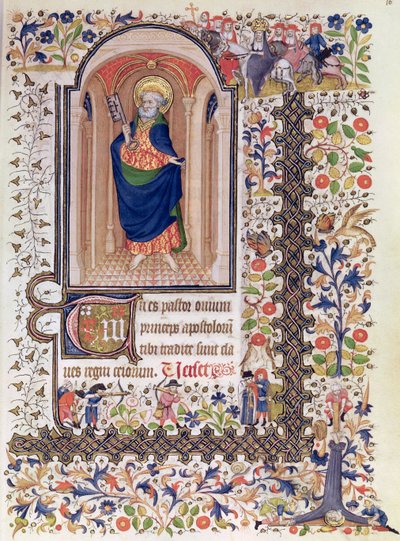 Tu es pastor ouium
princeps apostoloꝝ
tibi tradite sunt cla
ues regni celorum.